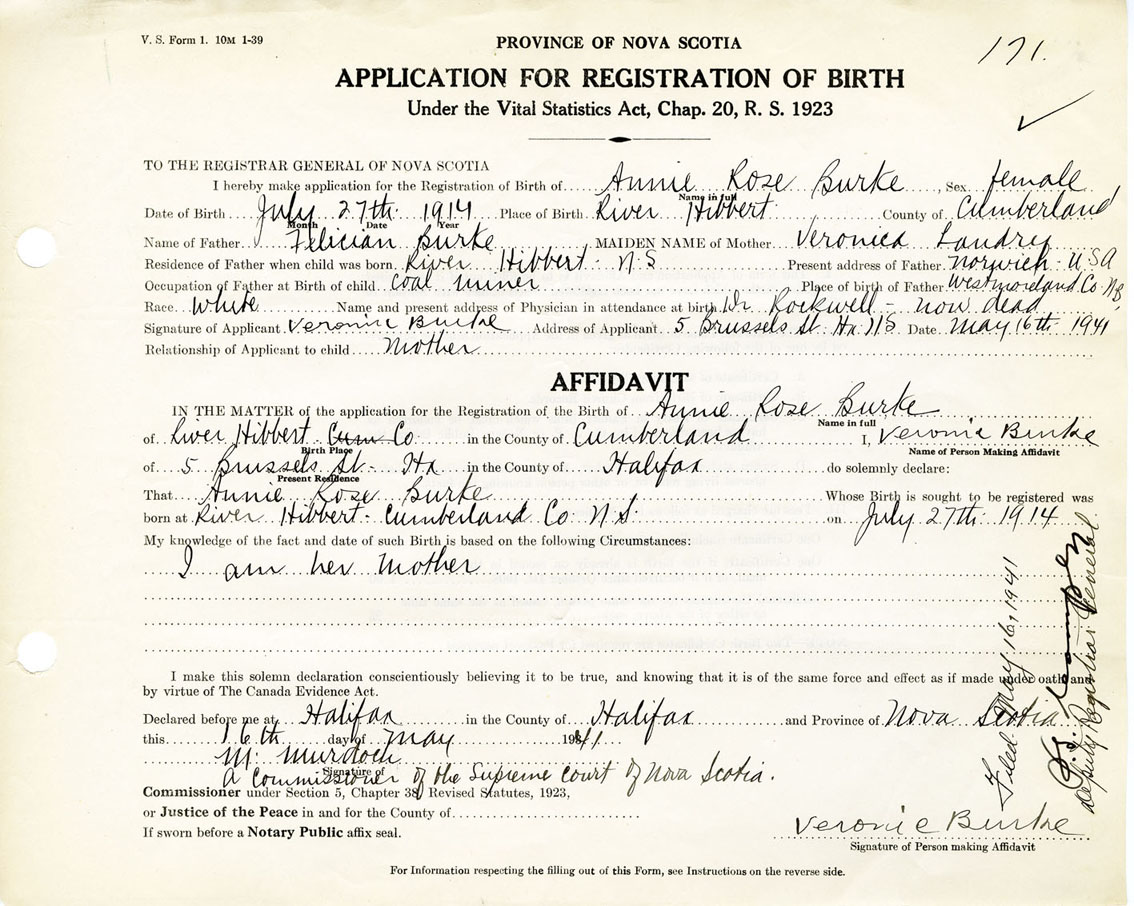 V. S. Form 1. 10M 1-39
PROVINCE OF NOVA SCOTIA
171.
APPLICATION FOR REGISTRATION OF BIRTH
Under the Vital Statistics Act, Chap. 20, R. S. 1923
TO THE REGISTRAR GENERAL OF NOVA SCOTIA
I hereby make application for the Registration of Birth of Annie Rose Burke, Sex female
Name in full
Date of Birth July 27th 1914 Place of Birth River Hibbert County of Cumberland
Month Date Year
Name of Father Felician Burke MAIDEN NAME of Mother Veronica Landry
Residence of Father when child was born River Hibbert - N S Present address of Father Norwich - U S A
Occupation of Father at Birth of child coal miner Place of birth of Father Westmoreland Co. N B
Race White Name and present address of Physician in attendance at birth Dr Rockwell - now dead
Signature of Applicant Veronie Burke Address of Applicant 5 Brussels St. Hx N S Date May 16th 1941
Relationship of Applicant to child Mother
AFFIDAVIT
IN THE MATTER of the application for the Registration of the Birth of Annie Rose Burke
Name in full
of River Hibbert Cum Co in the County of Cumberland I, Veronie Burke
Birth Place Name of Person Making Affidavit
of 5 Brussels St - Hx in the County of Halifax do solemnly declare:
Present Residence
That Annie Rose Burke Whose Birth is sought to be registered was
born at River Hibbert - Cumberland Co N.S. on July 27th 1914
My knowledge of the fact and date of such Birth is based on the following Circumstances:
I am her Mother
I make this solemn declaration conscientiously believing it to be true, and knowing that it is of the same force and effect as if made under oath and
by virtue of The Canada Evidence Act.
Declared before me at Halifax in the County of Halifax and Province of Nova Scotia
this 16th day of May 1941
M. Murdoch
Signature of
A Commissioner of the Supreme Court of Nova Scotia.
Commissioner under Section 5, Chapter 38, Revised Statutes, 1923,
or Justice of the Peace in and for the County of
If sworn before a Notary Public affix seal.
Veronie Burke
Signature of Person making Affidavit
For Information respecting the filling out of this Form, see Instructions on the reverse side.
Filed May 16, 1941
Deputy Registrar General